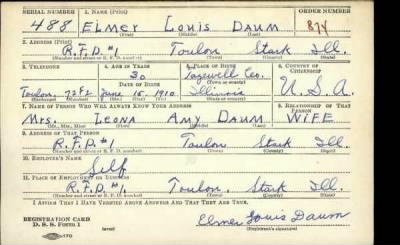 SERIAL NUMBER 1. NAME (Print) ORDER NUMBER
488 ELMER LOUIS DAUM 874
(First) (Middle) (Last)
2. ADDRESS (Print)
R.F.D. #1 Toulon Stark Ill.
(Number and street or R. F. D. number) (Town) (County) (State)
3. TELEPHONE 4. AGE IN YEARS 5. PLACE OF BIRTH 6. COUNTRY OF CITIZENSHIP
30 Tazewell Co.
DATE OF BIRTH (Town or county)
Toulon, 72F2 June 15, 1910 Illinois U.S.A.
(State or country)
7. NAME OF PERSON WHO WILL ALWAYS KNOW YOUR ADDRESS 8. RELATIONSHIP OF THAT PERSON
Mrs. LEONA AMY DAUM WIFE
(Mr., Mrs., Miss) (First) (Middle) (Last)
9. ADDRESS OF THAT PERSON
R.F.D. #1 Toulon Stark Ill.
(Number and street or R. F. D. number) (Town) (County) (State)
10. EMPLOYER'S NAME
Self
11. PLACE OF EMPLOYMENT OR BUSINESS
R.F.D. #1, Toulon, Stark Ill.
(Number and street or R. F. D. number) (Town) (County) (State)
I AFFIRM THAT I HAVE VERIFIED ABOVE ANSWERS AND THAT THEY ARE TRUE.
REGISTRATION CARD
D. S. S. FORM 1 (over) Elmer Louis Daum
(Registrant's signature)